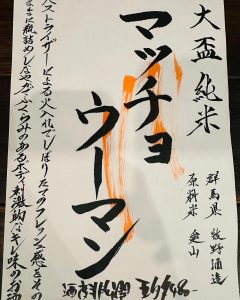 大盃 純米
群馬県 牧野酒造
原料米 愛山
マッチョ
ウーマン
パストライザーによる火入れでしぼりたてのフレッシュ感をその
ままに瓶詰めしなやかでふくらみのあるボディ刺激的なキレ味のお酒